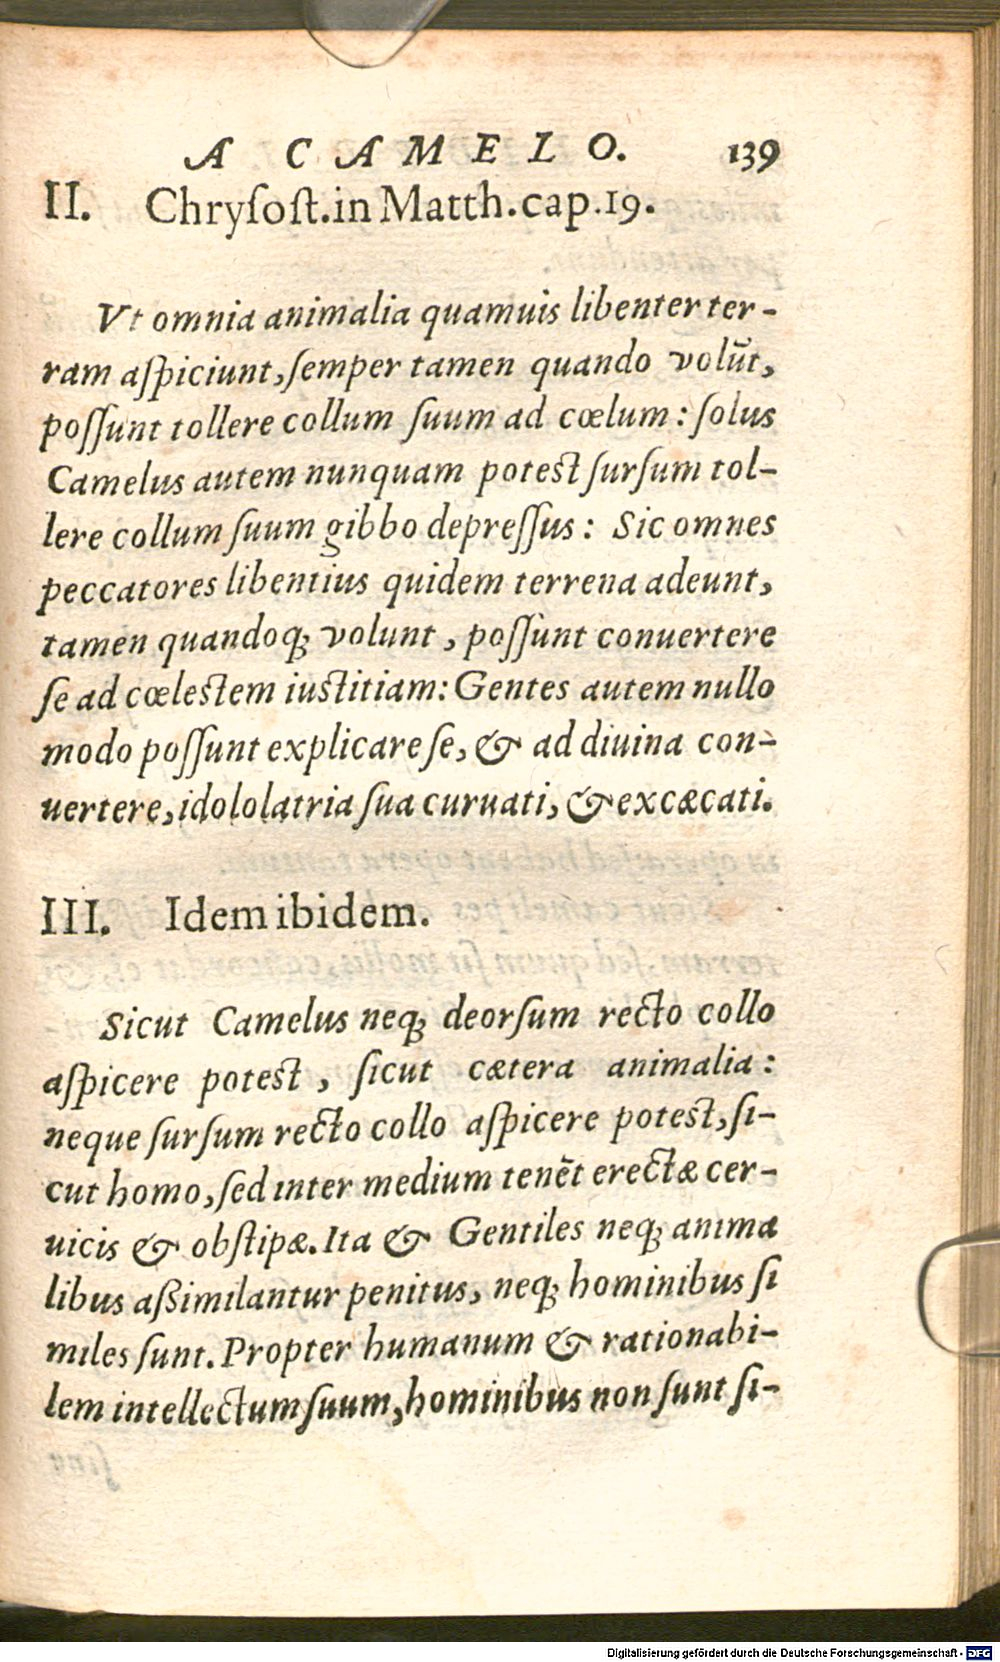 A CAMELO. 139
II. Chryſoſt. in Matth. cap. 19.
Vt omnia animalia quamuis libenter ter-
ram aſpiciunt, ſemper tamen quando volūt,
poſſunt tollere collum ſuum ad cœlum: ſolus
Camelus autem nunquam poteſt ſurſum tol-
lere collum ſuum gibbo depreſſus: Sic omnes
peccatores libentius quidem terrena adeunt,
tamen quandoq; volunt, poſſunt conuertere
ſe ad cœleſtem iuſtitiam: Gentes autem nullo
modo poſſunt explicare ſe, & ad diuina con-
uertere, idololatria ſua curuati, & excæcati.
III. Idem ibidem.
Sicut Camelus neq; deorſum recto collo
aſpicere poteſt, ſicut cætera animalia:
neque ſurſum recto collo aſpicere poteſt, ſi-
cut homo, ſed inter medium tenēt erectæ cer-
uicis & obſtipæ. Ita & Gentiles neq; anima
libus aßimilantur penitus, neq; hominibus ſi
miles ſunt. Propter humanum & rationabi-
lem intellectum ſuum, hominibus non ſunt ſi-
Digitalisierung gefördert durch die Deutsche Forschungsgemeinschaft - DFG